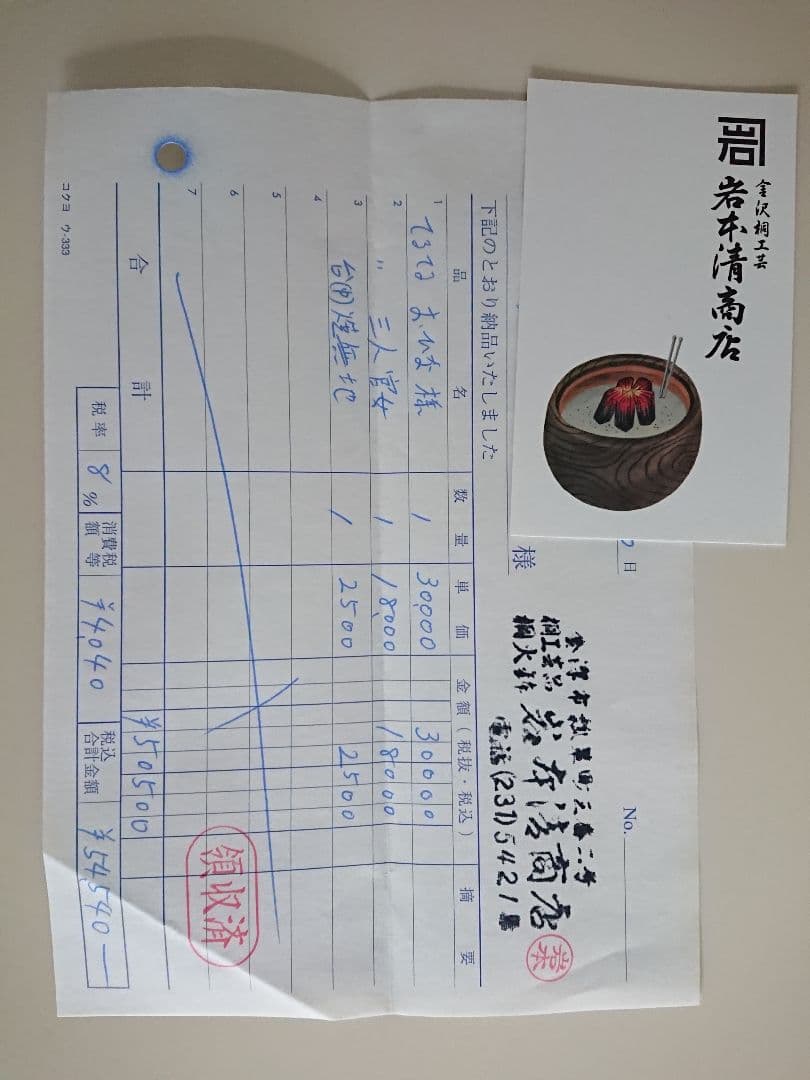 金沢桐工芸
岩本清商店
日
様
No.
金沢市瓢箪町六番二号
桐工芸品
桐火鉢 岩本清商店
電話(231)5421番
岩本
下記のとおり納品いたしました
品 名 数 量 単 価 金 額 (税抜・税込) 摘 要
1 てるてる おひな様 1 30,000 30000
2 〃 三人官女 1 18,000 18000
3 台(中)焼無地 1 2500 2500
4
5
6
7
領収済
合 計 ¥50500
税 率 8 % 消費税額等 ¥4,040 税込合計金額 ¥54,540―
コクヨ ウ-333